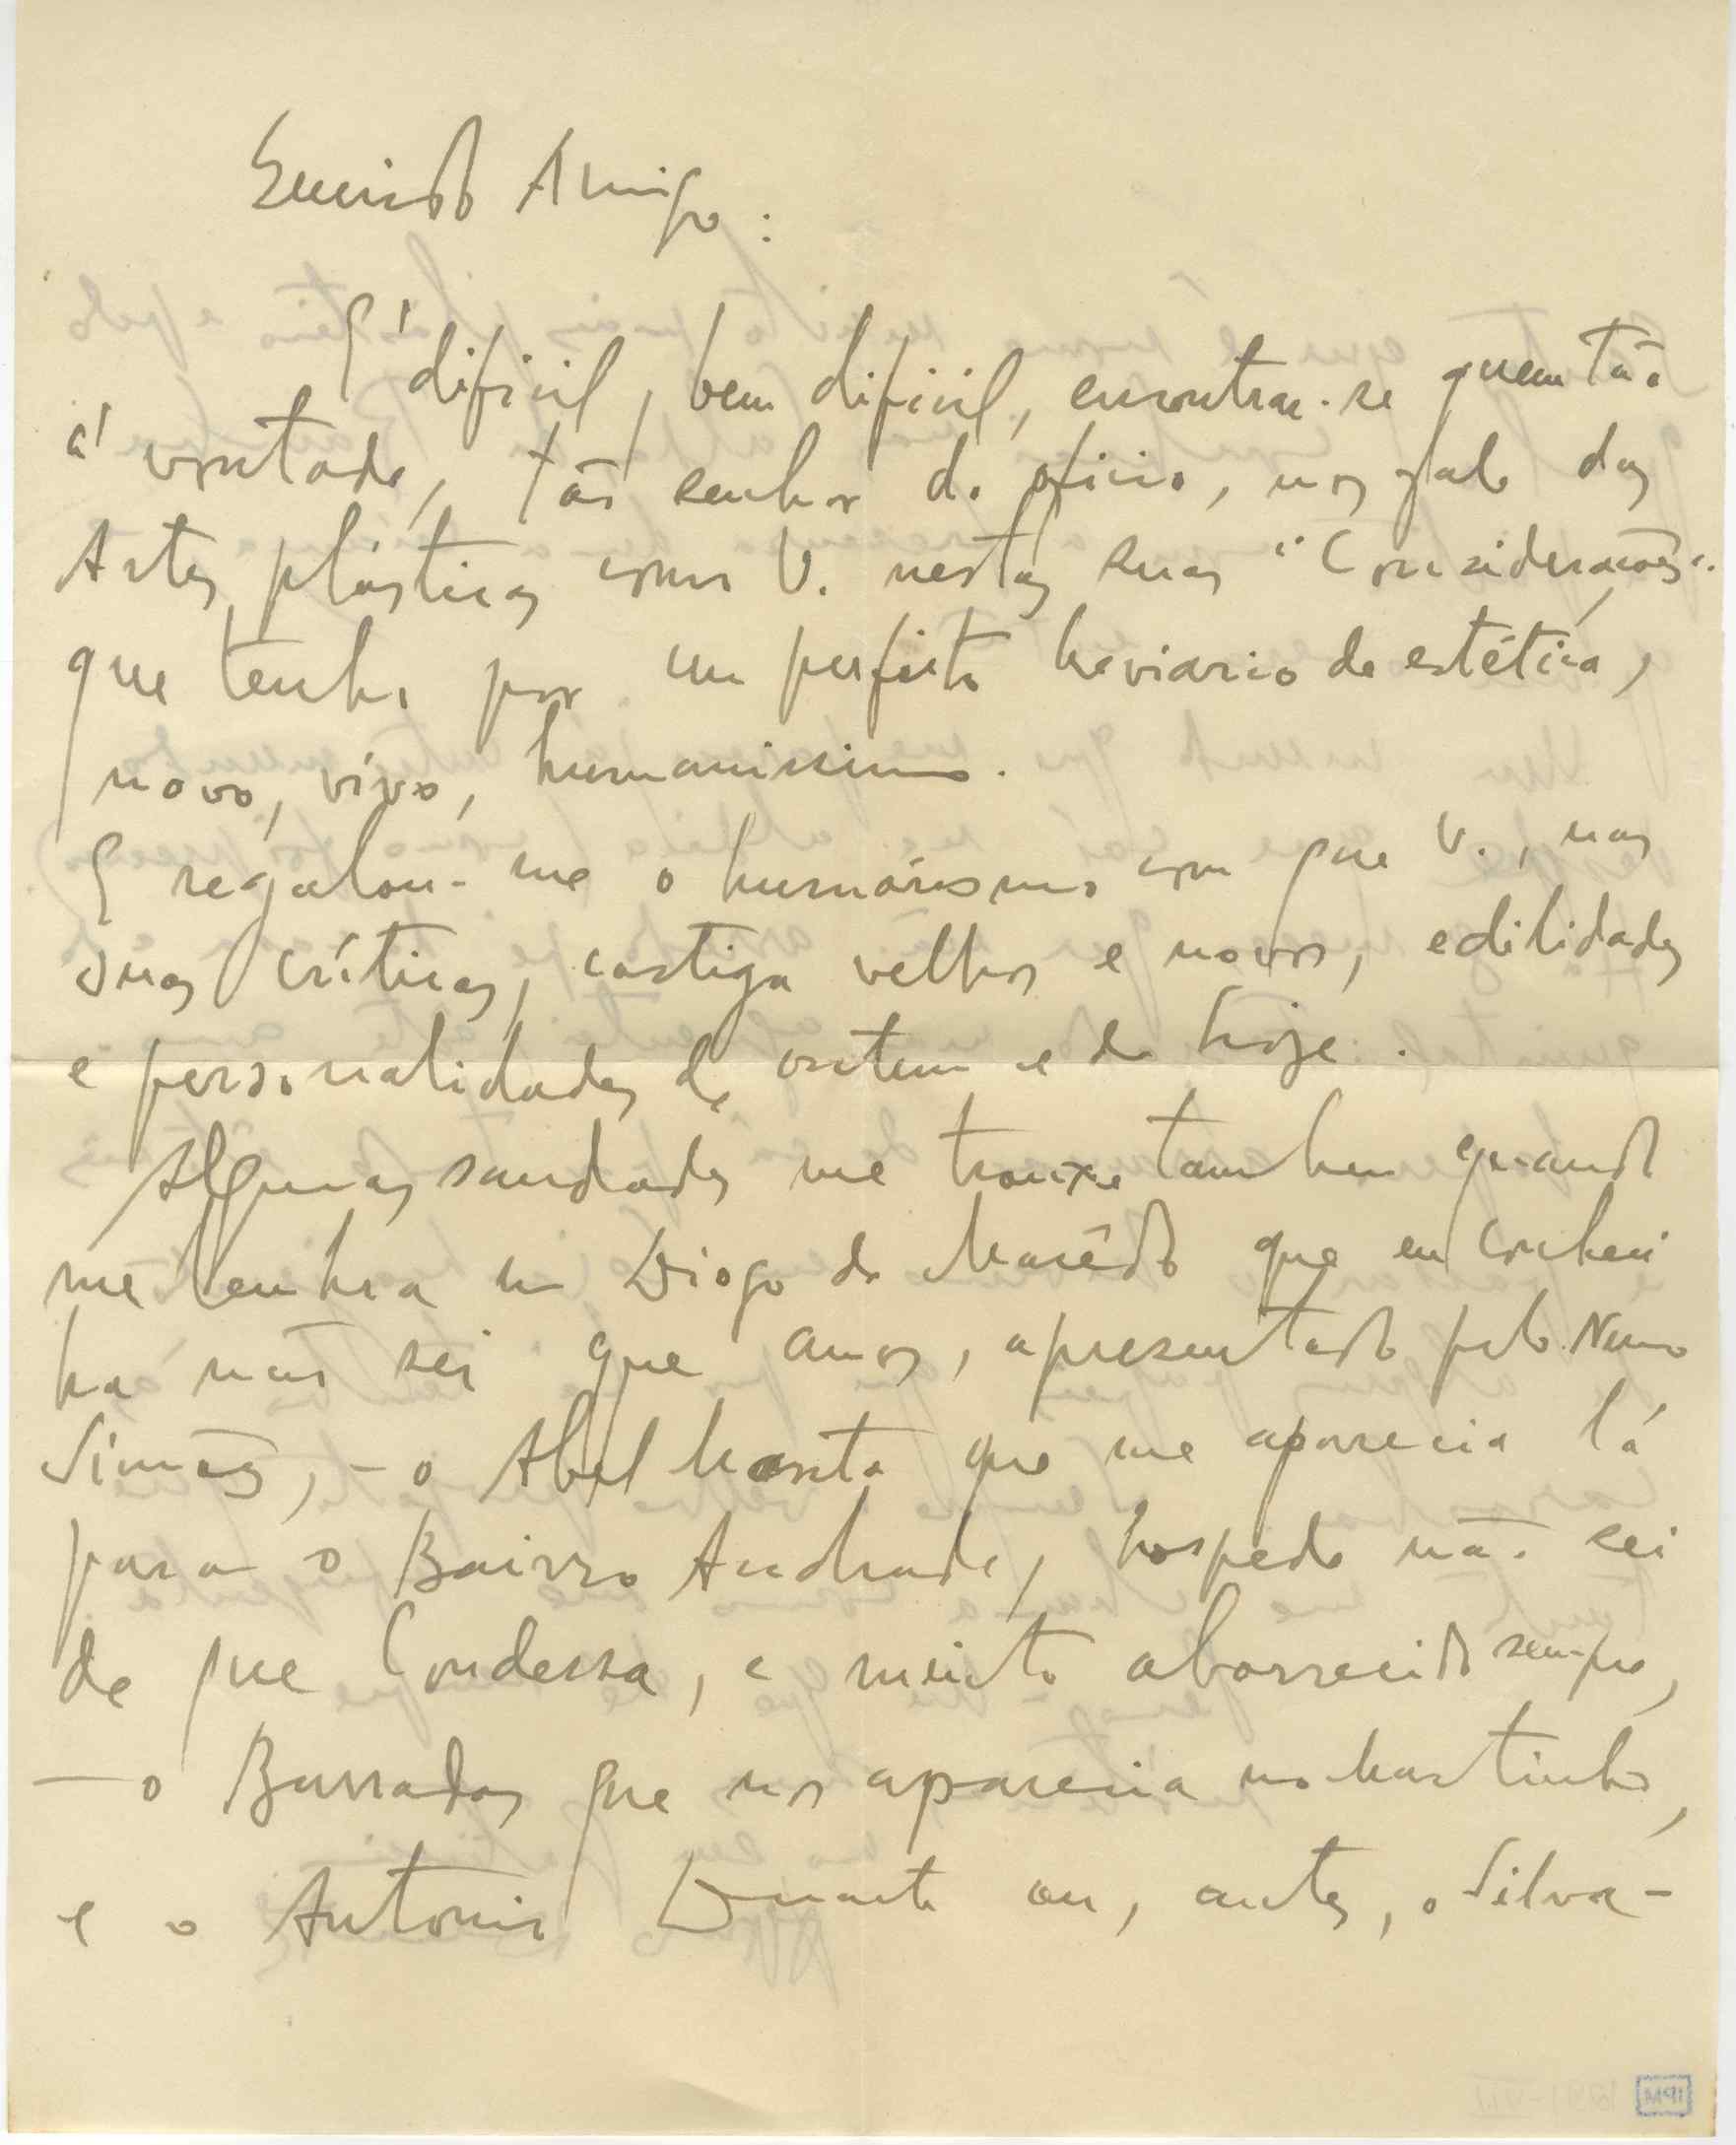 Querido Amigo:
E' dificil, bem dificil, encontrar-se quem tão
á vontade, tão senhor do oficio, nos fale das
Artes plásticas como V. nestas suas "Considerações"
que tenho por um perfeito breviario de estética,
novo, vivo, humanissimo.
E regalou-me o humorismo com que V., nas
suas críticas, castiga velhos e novos, edilidades
e personalidades de ontem e de hoje.
Algumas saudades me trouxe tambem quando
me lembra um Diogo de Macêdo que eu conheci
ha não sei que anos, apresentado pelo Nuno
Simões, - o Abel Manta que me aparecia lá
para o Bairro Andrade, hospede não sei
de que Condessa, e muito aborrecido sempre,
- o Barradas que nos aparecia no Martinho,
e o Antonio Duarte ou, antes, o Silva-
IPM